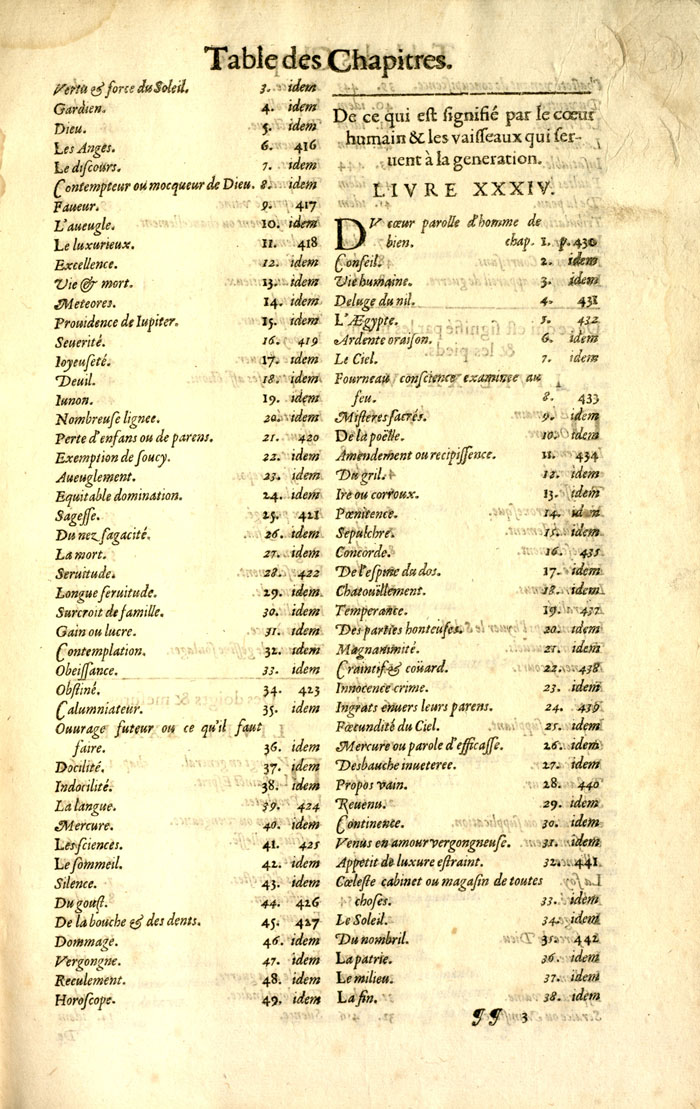 Table des Chapitres.
Vertu & force du Soleil. 3. idem
Gardien. 4. idem
Dieu. 5. idem
Les Anges. 6. 416
Le discours. 7. idem
Contempteur ou mocqueur de Dieu. 8. idem
Faueur. 9. 417
L'aueugle. 10. idem
Le luxurieux. 11. 418
Excellence. 12. idem
Vie & mort. 13. idem
Meteores. 14. idem
Prouidence de Iupiter. 15. idem
Seuerité. 16. 419
Ioyeuseté. 17. idem
Deuil. 18. idem
Iunon. 19. idem
Nombreuse lignee. 20. idem
Perte d'enfans ou de parens. 21. 420
Exemption de soucy. 22. idem
Aueuglement. 23. idem
Equitable domination. 24. idem
Sagesse. 25. 421
Du nez sagacité. 26. idem
La mort. 27. idem
Seruitude. 28. 422
Longue seruitude. 29. idem
Surcroit de famille. 30. idem
Gain ou lucre. 31. idem
Contemplation. 32. idem
Obeissance. 33. idem
Obstiné. 34. 423
Calumniateur. 35. idem
Ouurage futeur ou ce qu'il faut
faire. 36. idem
Docilité. 37. idem
Indocilité. 38. idem
La langue. 39. 424
Mercure. 40. idem
Les sciences. 41. 425
Le sommeil. 42. idem
Silence. 43. idem
Du goust. 44. 426
De la bouche & des dents. 45. 427
Dommage. 46. idem
Vergongne. 47. idem
Reculement. 48. idem
Horoscope. 49. idem
De ce qui est signifié par le cœur
humain & les vaisseaux qui ser-
uent à la generation.
LIVRE XXXIV.
DV cœur parolle d'homme de
bien. chap. 1. p. 430
Conseil. 2. idem
Vie humaine. 3. idem
Deluge du nil. 4. 431
L'Ægypte. 5. 432
Ardente oraison. 6. idem
Le Ciel. 7. idem
Fourneau conscience examinee au
feu. 8. 433
Misteres sacrés. 9. idem
De la poëlle. 10. idem
Amendement ou recipissence. 11. 434
Du gril. 12. idem
Ire ou corroux. 13. idem
Pœnitence. 14. idem
Sepulchre. 15. idem
Concorde. 16. 435
De l'espine du dos. 17. idem
Chatouëllement. 18. idem
Temperance. 19. 437
Des parties honteuses. 20. idem
Magnanimité. 21. idem
Craintif & coüard. 22. 438
Innocence crime. 23. idem
Ingrats enuers leurs parens. 24. 439
Fœcundité du Ciel. 25. idem
Mercure ou parole d'efficasse. 26. idem
Desbauche inueteree. 27. idem
Propos vain. 28. 440
Reuenu. 29. idem
Continence. 30. idem
Venus en amour vergongneuse. 31. idem
Appetit de luxure estraint. 32. 441
Cœleste cabinet ou magasin de toutes
choses. 33. idem
Le Soleil. 34. idem
Du nombril. 35. 442
La patrie. 36. idem
Le milieu. 37. idem
La fin. 38. idem
JJ 3